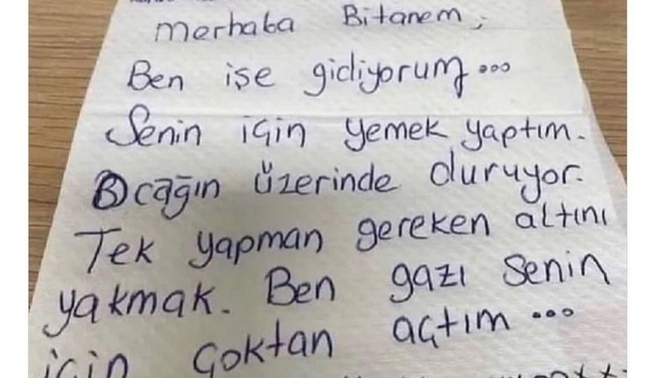 Merhaba Bitanem,
Ben işe gidiyorum...
Senin için yemek yaptım.
Ocağın üzerinde duruyor.
Tek yapman gereken altını
yakmak. Ben gazı senin
için çoktan açtım...